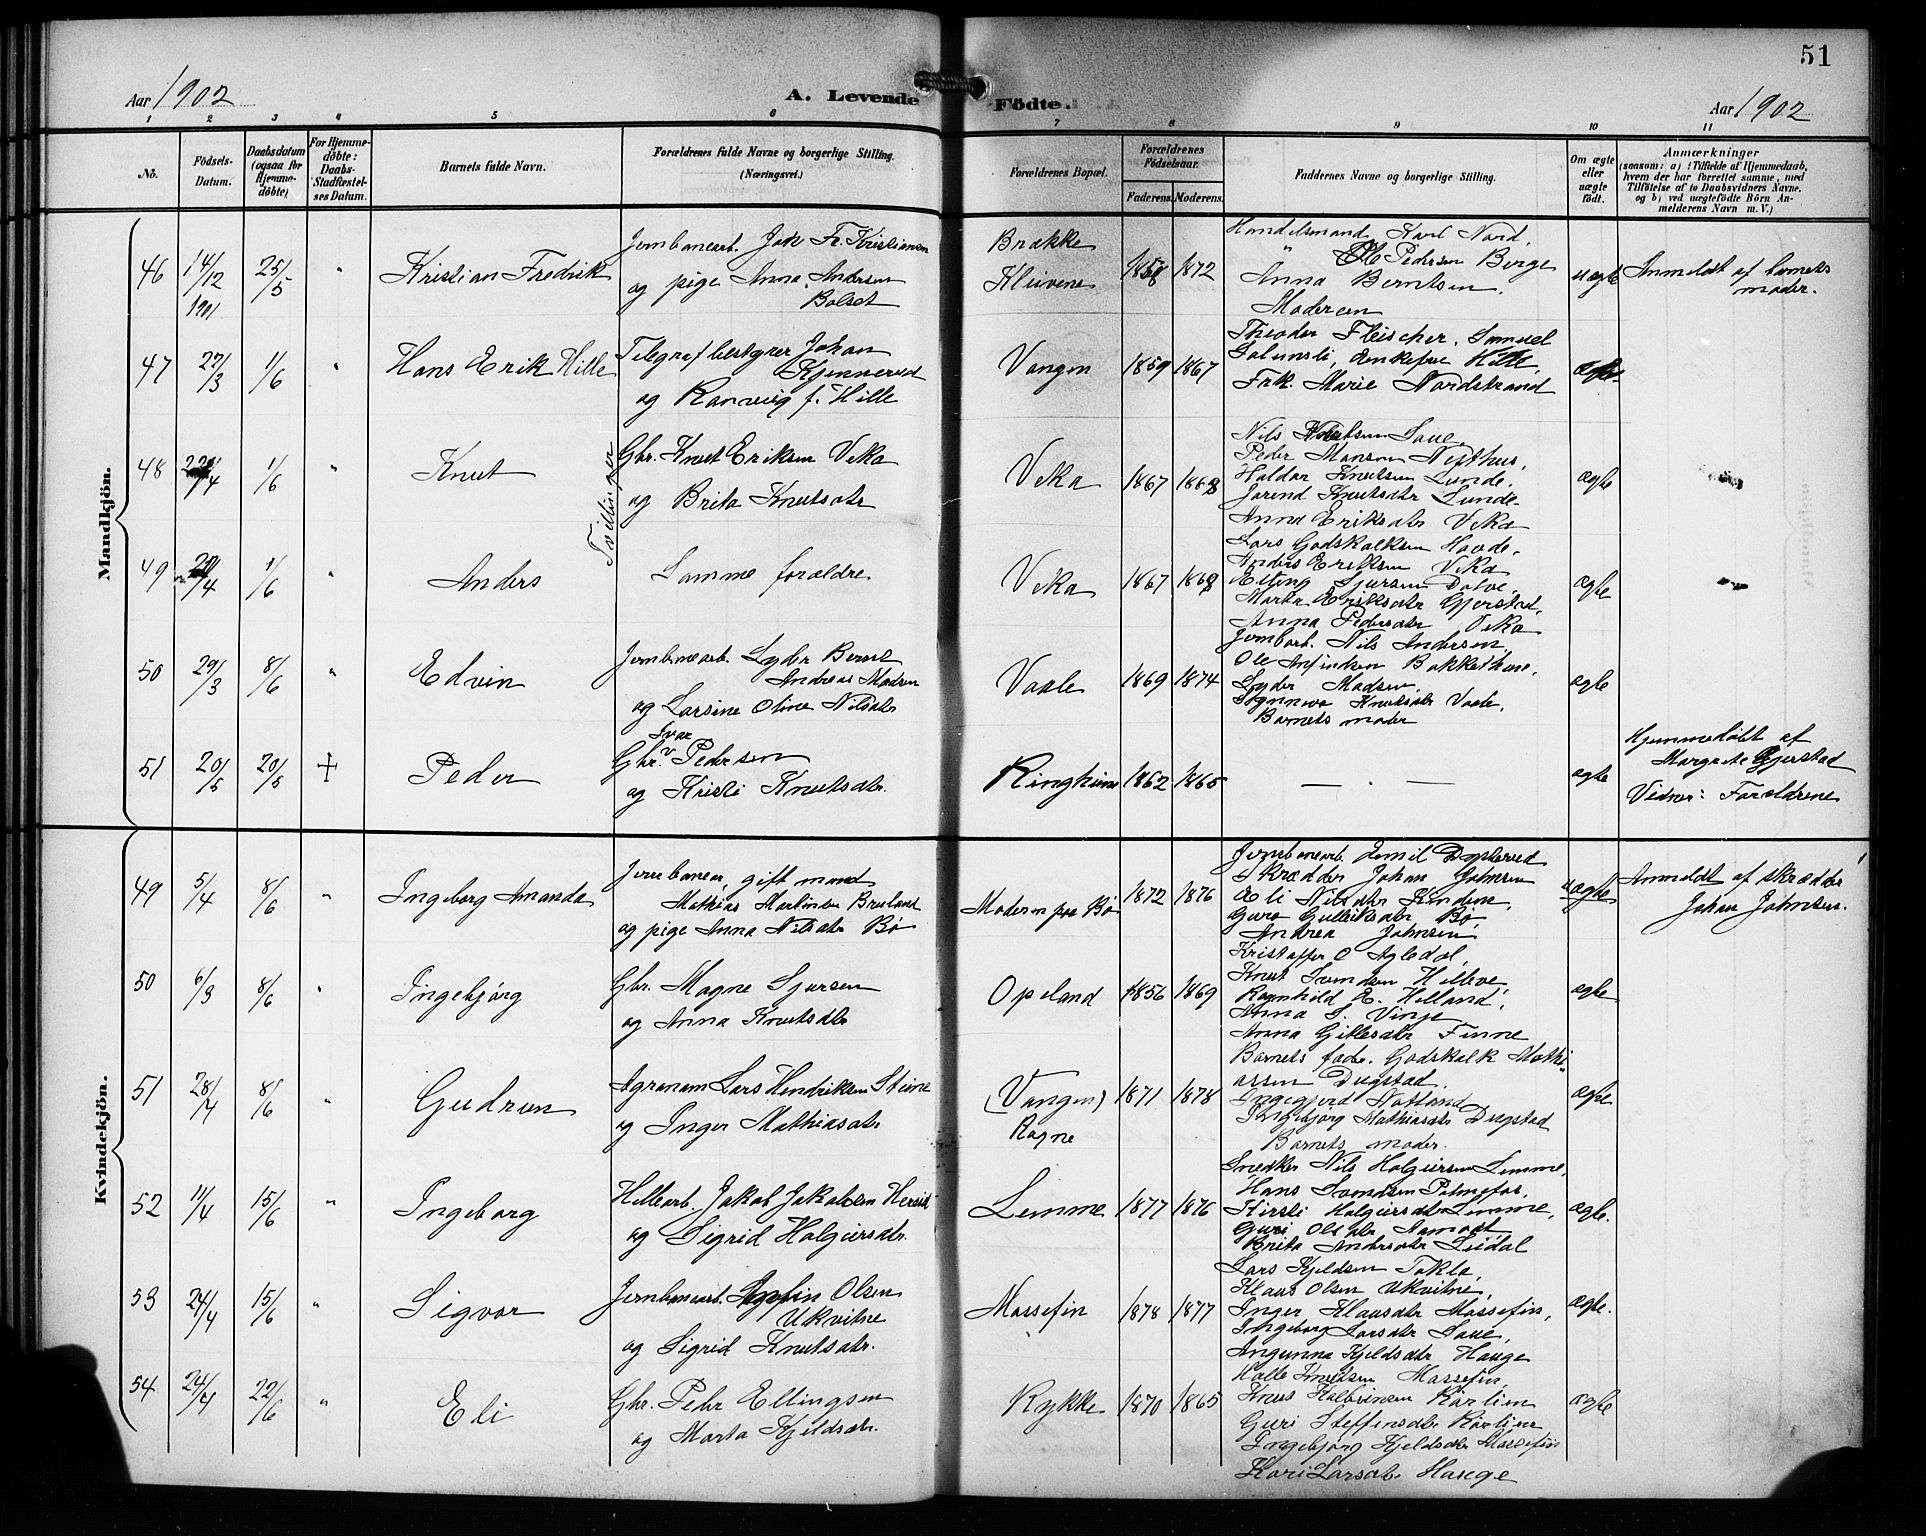 51
Aar 1902
A. Levende Födte.
Aar 1902
1 2 3 4 5 6 7 8 9 10 11
No.
Födsels-Datum.
Daabsdatum (ogsaa for Hjemme-döbte)
For Hjemme-döbte: Daabs-Stadfæstel-ses Datum.
Barnets fulde Navn.
Forældrenes fulde Navne og borgerlige Stilling.
(Næringsvei.)
Forældrenes Bopæl.
Forældrenes Födselsaar.
Faderens. Moderens.
Faddernes Navne og borgerlige Stilling.
Om ægte eller uægte födt.
Anmærkninger
(saasom: a) i Tilfælde af Hjemmedaab,
hvem der har forrettet samme, med
Tilföielse af to Daabsvidners Navne.
og b) ved uægtefödte Börn An-
melderens Navn m. V.)
Mandkjön.
46 14/12 1901 25/5 " Kristian Fredrik
Jernbanearb. Joh. Fr. Kristiansen
og pige Anna Andersen
Bolset
Brække
Kleivene
1858 1872
Handelsmand Karl Nord.
" Ole Pedersen Borge
Anna Berntsen.
Moderen
uægte
Anmeldt af barnets
moder.
47 27/3 1/6 " Hans Erik Hille
Telegrafbestyrer Johan
Kjennerud
og Ranveig f. Hille
Vangen 1859 1867
Theodor Fleischer, Samuel
enkefrue Hille,
Frk. Marie Nordstrand
ægte
48 22/4 1/6 " Knut
Tvillinger
Gbr. Knut Eriksen Veka
og Brita Knutsdtr
Veka 1867 1868
Nils Knutsen Saue,
Peder Monsen Nesthus,
Haldor Knutsen Lunde.
Jorend Knutsdtr Lunde
Anna Eriksdtr Veka
ægte
49 /4 1/6 " Anders
Samme forældre
Veka 1867 1868
Lars Godskalksen Haade,
Anders Eriksen Veka
Elling Sjursen Dolve,
Marta Eriksdtr Gjerstad,
Anna Pedersdtr Veka
ægte
50 29/3 8/6 " Edvin
Jernbanearb. Lyder Bernt
Andreas Madsen
og Larsine Oline Nilsdtr
Vaale 1869 1874
Jernbarb. Nils Andersen,
Ole Anfindsen Bakkethun,
Lyder Madsen,
Synneva Knutsdtr Vaale,
Barnets moder
ægte
51 20/5 20/5 + Peder
Ivar
Gbr. v Pedersen
og Kristi Knutsdtr.
Ringheim 1862 1865
— . —
ægte
Hjemmedöbt af
Margrete Gjerstad
Vidner: Forældrene
Kvindekjön.
49 5/4 8/6 " Ingeborg Amanda
Jernbanear, gift mand
Mathias Martinsen Bruland
og pige Anna Nilsdtr Bø
Moderen paa Bø 1872 1876
Jernbanearb. Emil
Skrædder Johan Johnsen
Eli Nilsdtr
Guro Gulleiksdtr Bø,
Andrea Johnsen
uægte
Anmeldt af skrædder
Johan Johnsen.
50 6/3 8/6 " Ingebjørg
Gbr. Magne Sjursen
og Anna Knutsdtr
Opeland 1856 1869
Kristoffer O Ygledal,
Knut Svendsen Helleve,
Ragnhild E. Helland,
Anna S. Vinje
Anna Gillesdtr Finne
ægte
51 28/4 8/6 " Gudrun
Agronom Lars Hendriksen Steine
og Inger Mathiasdtr
(Vangen)
Rogne
1871 1878
Barnets fader. Godskalk Mathi-
assen Dugstad.
Ingegjerd Natland
Ingebjørg Mathiasdtr Dugstad
Barnets moder.
ægte
52 11/4 15/6 " Ingeborg
Hellearb. Jakob Jakobsen
og Sigrid Holgeirsdtr.
Lemme 1877 1876
Snedker Nils Holgeirsen Lemme,
Hans Svendsen Palmefos,
Kirsti Holgeirsdtr Lemme,
Guri Olsdtr
Brita Andersdtr Leidal
ægte.
53 24/4 15/6 " Sigvor
Jernbanearb. Anfin Olsen
Ukvitne
og Sigrid Knutsdtr.
Massefin 1878 1877
Lars Kjeldsen Takla,
Klaus Olsen Ukvitne,
Inger Klausdtr Massefin,
Ingeborg Larsdtr Saue,
Angunna Kjeldsdtr Hauge
ægte.
54 24/4 22/6 " Eli
Gbr. Peder Ellingsen
og Marta Kjeldsdtr.
Rykke 1870 1865
Halle Knudsen Massefin,
Knut Halbrinsen Rørlien
Guri Steffensdtr Rørlien
Ingebjørg Kjeldsdtr Massefin
Kari Larsdtr. Hauge
ægte